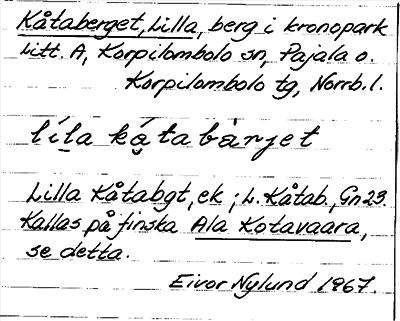 Kåtaberget, Lilla, berg i kronopark
Litt. A, Korpilombolo sn, Pajala o.
Korpilombolo tg, Norrb. l.
líla kǻtabàrjet
Lilla Kåtabgt, ek; L. Kåtab., Gn 23.
Kallas på finska Ala Kotavaara,
se detta.
Eivor Nylund 1967.